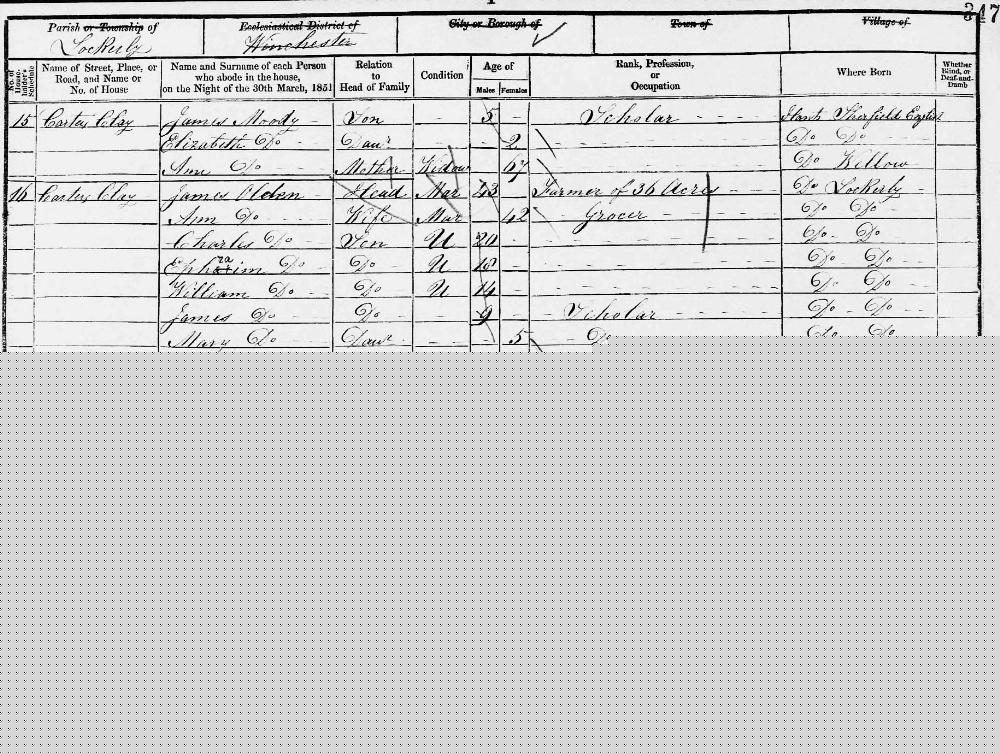 347
Parish or Township of Ecclesiastical District of City or Borough of Town of Village of
Lockerly Winchester
No. of House-holder's Schedule Name of Street, Place, or Road, and Name or No. of House Name and Surname of each Person who abode in the house, on the Night of the 30th March, 1851 Relation to Head of Family Condition Age of Males Females Rank, Profession, or Occupation Where Born Whether Blind, or Deaf-and-Dumb
15 Carters Clay James Moody Son 5 Scholar Hants Sherfield English
Elizabeth Do Daur 2 Do Do
Ann Do Mother Widow 67 Do Willow
16 Carters Clay James Head Mar 43 Farmer of 36 Acres Do Lockerly
Ann Do Wife Mar 42 Grocer Do Do
Charles Do Son U 20 Do Do
Ephraim Do Do U 18 Do Do
William Do Do U 14 Do Do
James Do Do 9 Scholar Do Do
Mary Do Daur 5 Do Do Do